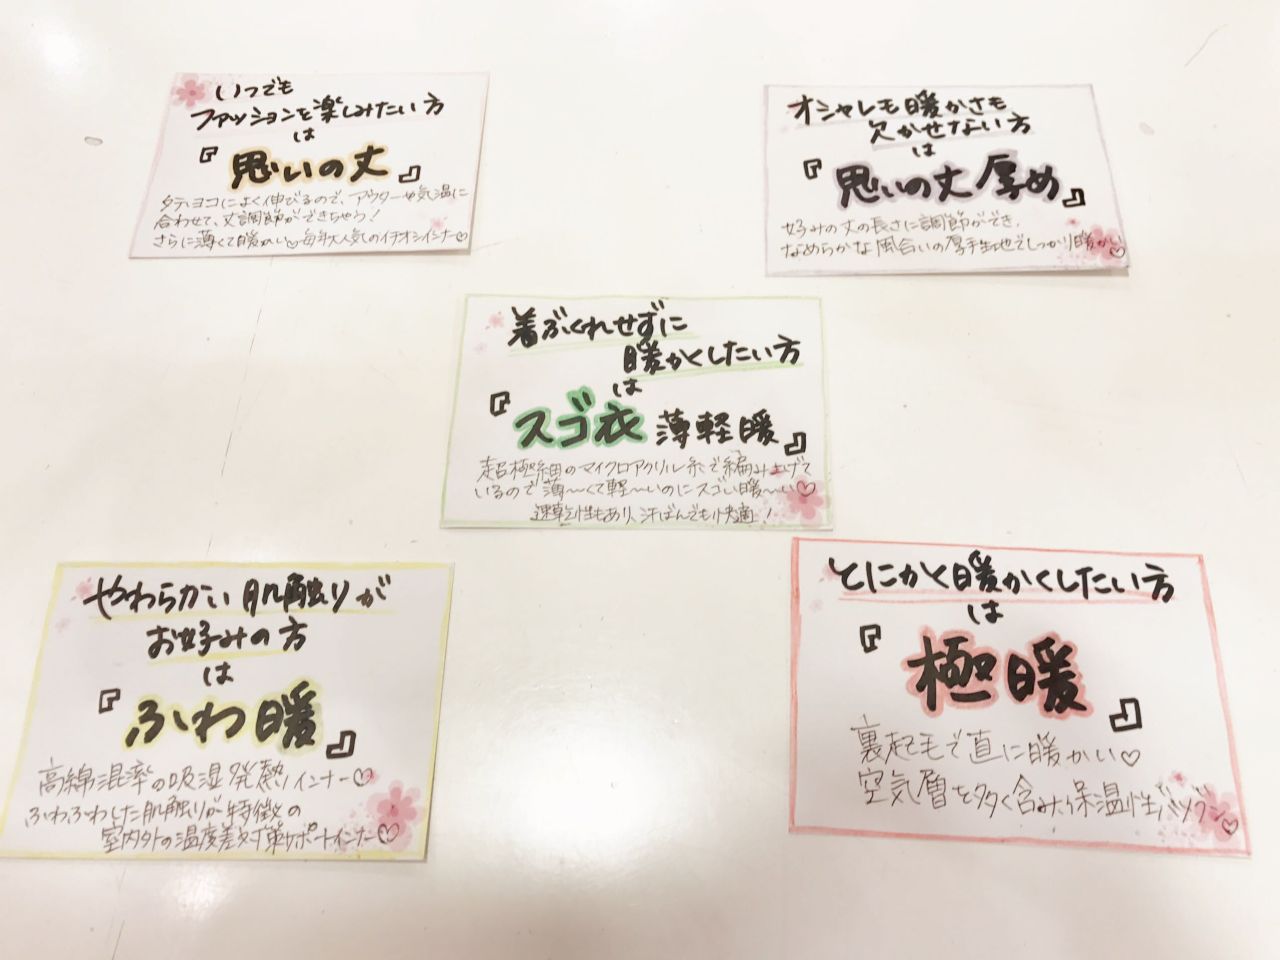 いつでも
ファッションを楽しみたい方
は
『思いの丈』
タテ、ヨコによく伸びるので、アウターや気温に
合わせて、丈調節ができちゃう!
さらに薄くて暖かい♡毎年大人気のイチオシインナー♡
オシャレも暖かさも
欠かせない方
は
『思いの丈 厚め』
お好みの丈の長さに調節ができ、
なめらかな風合いの厚手生地でしっかり暖かい♡
着ぶくれせずに
暖かくしたい方
は
『スゴ衣 薄軽暖』
超極細のマイクロアクリル糸で編み上げて
いるので薄〜くて軽〜いのにスゴい暖〜い♡
速乾性もあり、汗ばんでも快適!
やわらかい肌触りが
お好みの方
は
『ふわ暖』
高綿混率の吸湿発熱インナー♡
ふわふわした肌触りが特徴の
室内外の温度差対策サポートインナー♡
とにかく暖かくしたい方
は
『極暖』
裏起毛で直に暖かい♡
空気層を多く含み、保温性バツグン♡